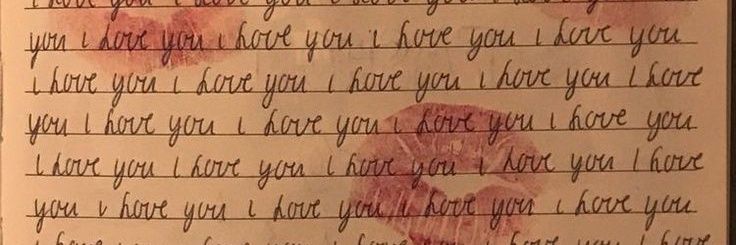 i love you i love you i love you i love you
you i love you i love you i love you i love you
i love you i love you i love you i love you i love
you i love you i love you i love you i love you
i love you i love you i love you i love you i love
you i love you i love you i love you i love you